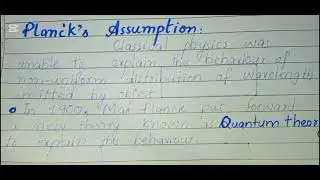 Planck's Assumption:
Classical physics was
unable to explain the behaviour of
non-uniform distribution of wavelength
emitted by object
• In 1900, Max Planck put forward
a new theory known as Quantum theory
to explain this behaviour.